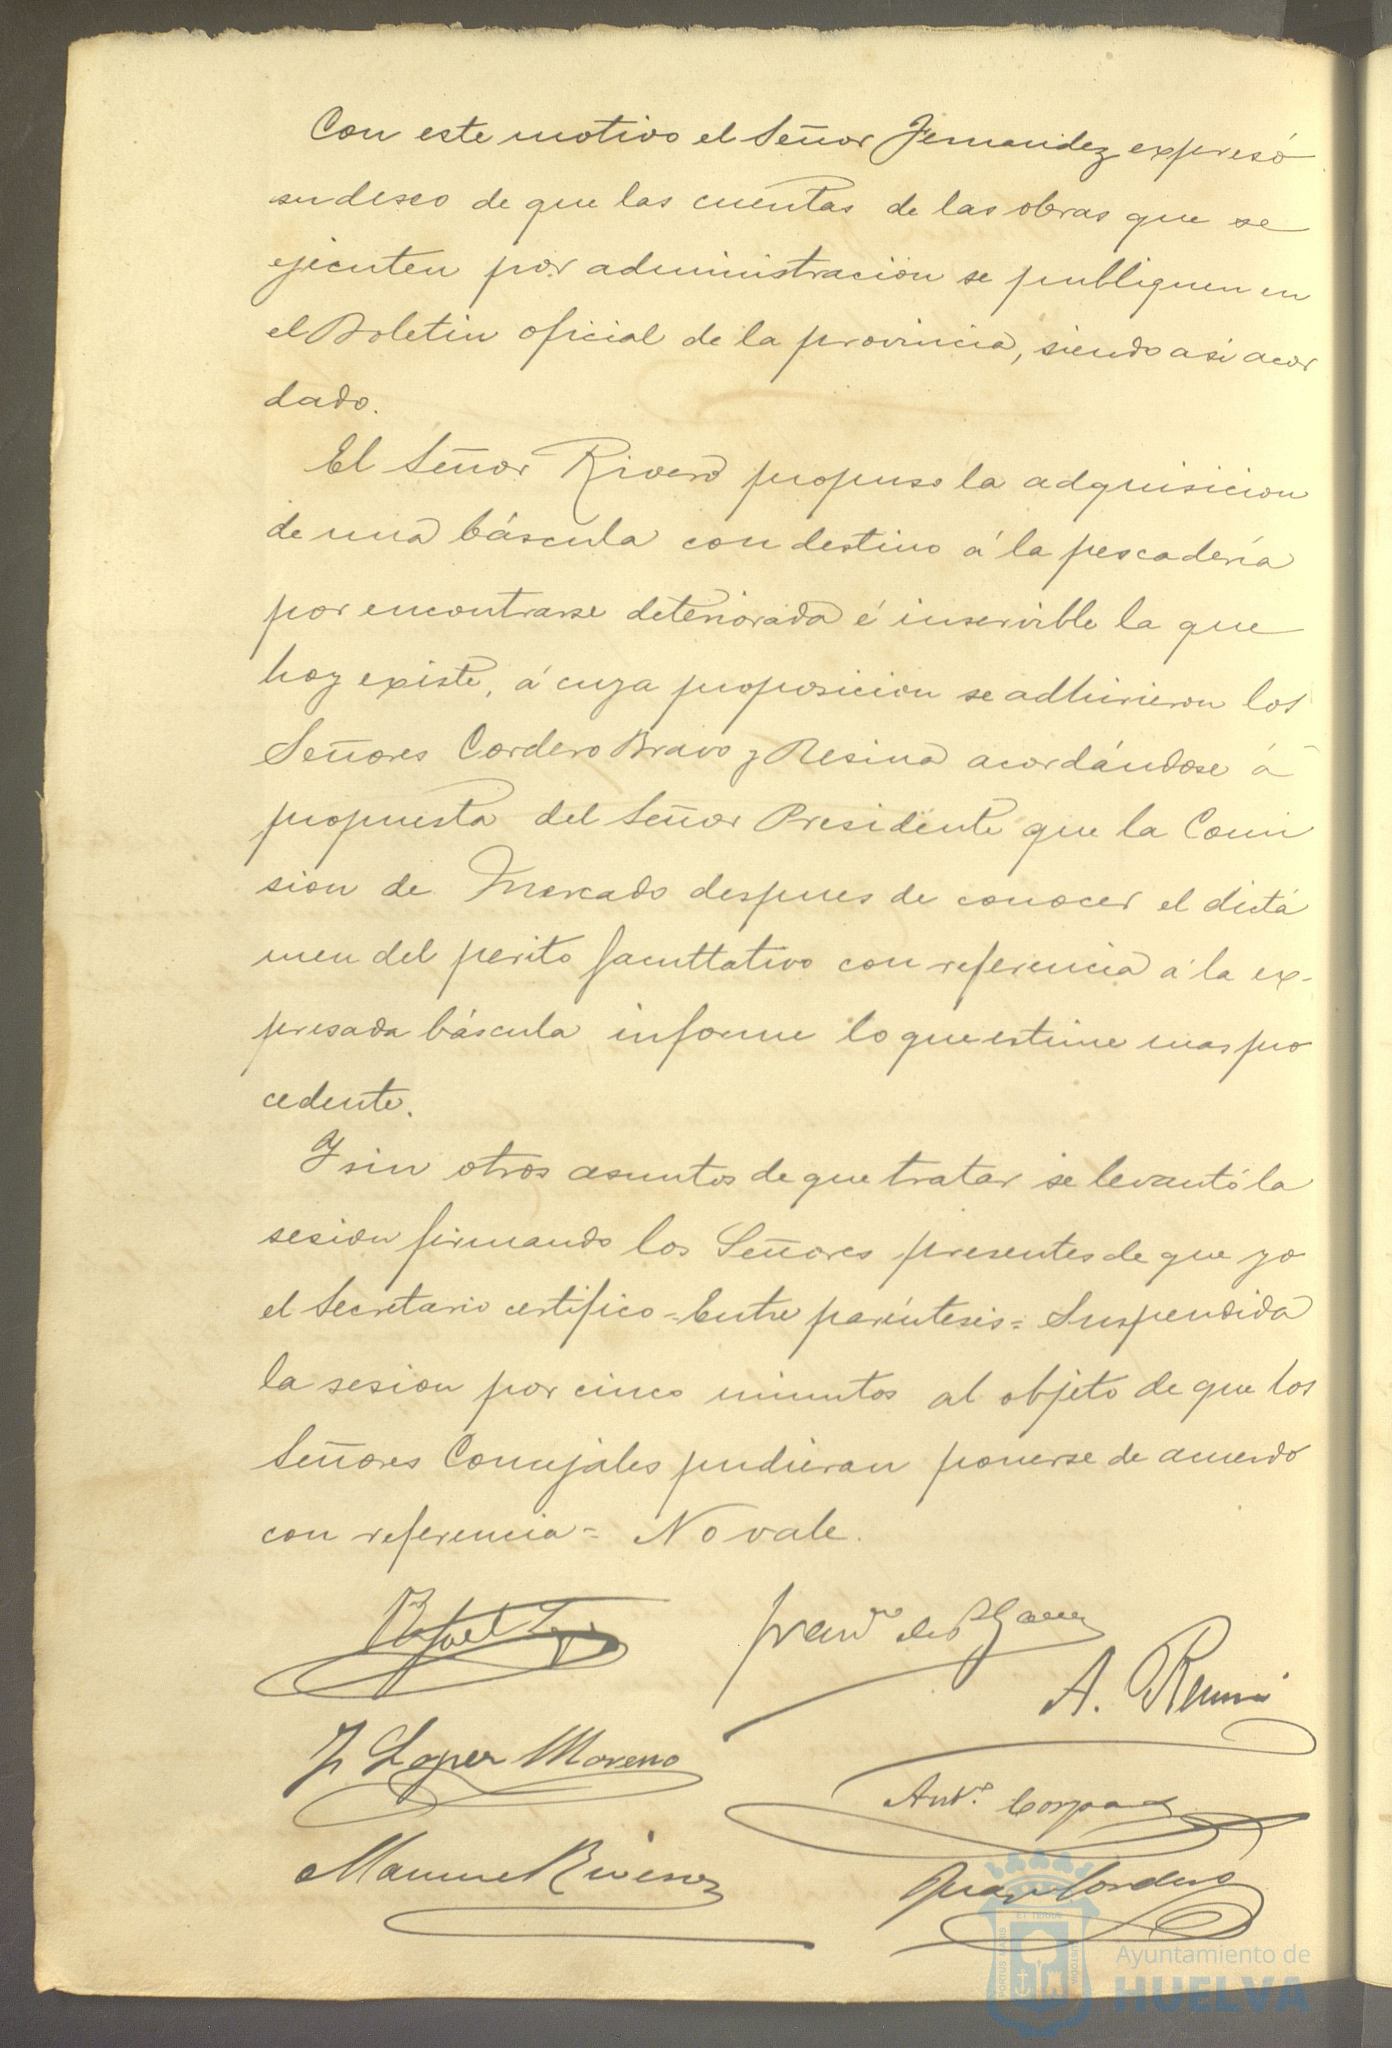 Con este motivo el Señor Fernandez expresó
su deseo de que las cuentas de las obras que se
ejecuten por administracion se publiquen en
el Boletin oficial de la provincia, siendo asi acor
dado.
El Señor Rivero propuso la adquisicion
de una báscula con destino á la pescadería
por encontrarse deteriorada é inservible la que
hoy existe, á cuya proposicion se adhirieron los
Señores Cordero Bravo y Resina acordándose á
propuesta del Señor Presidente que la Comi
sion de Mercado despues de conocer el dictá
men del perito facultativo con referencia á la ex-
presada báscula informe lo que estime mas pro
cedente.
Y sin otros asuntos de que tratar se levantó la
sesion firmando los Señores presentes de que yo
el Secretario certifico = Entre paréntesis = Suspendida
la sesion por cinco minutos al objeto de que los
Señores Concejales pudieran ponerse de acuerdo
con referencia = No vale.
Rafael
Franco de P
A.
J Lopez Moreno
Anto.
Manuel Rivero
Juan Cordero
PORTUS MARIS ET TERRAE CUSTODIA
Ayuntamiento de
HUELVA